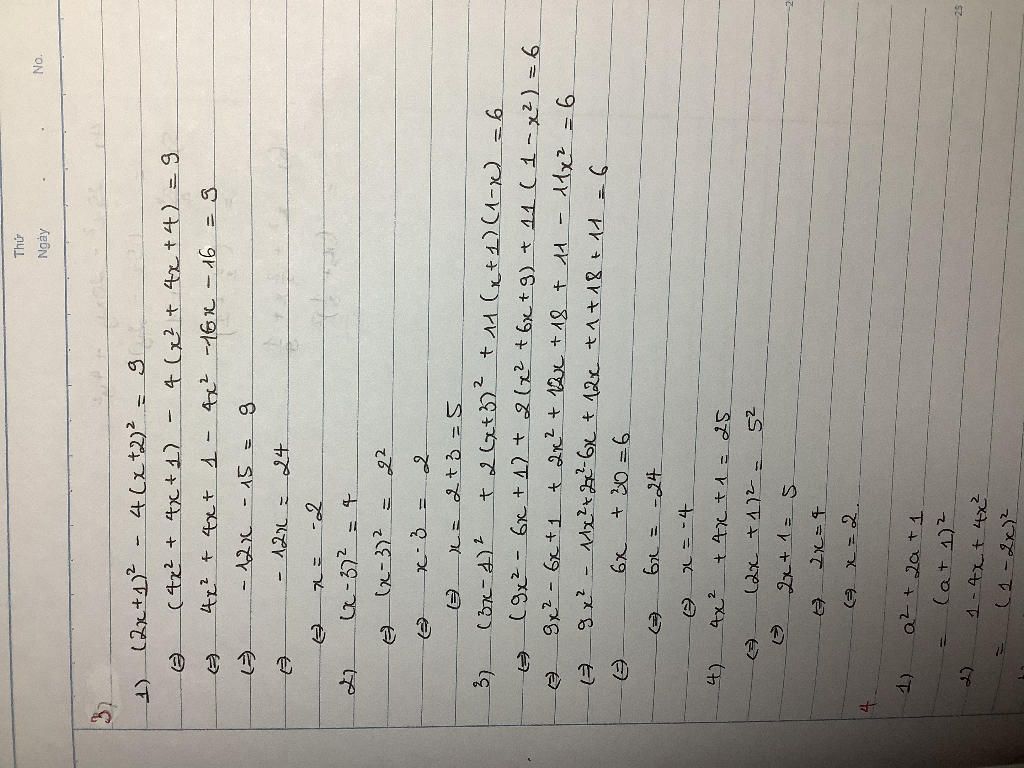 Thứ
Ngày
No.
3)
1) (2x+1)² - 4(x+2)² = 9
(=) (4x² + 4x + 1) - 4(x² + 4x + 4) = 9
(=) 4x² + 4x + 1 - 4x² - 16x - 16 = 9
(=) -12x - 15 = 9
(=) -12x = 24
(=) x = -2
2) (x-3)² = 4
(=) (x-3)² = 2²
(=) x-3 = 2
(=) x = 2+3 = 5
3) (3x-1)² + 2(x+3)² + 11(x+1)(1-x) = 6
(=) (9x² - 6x + 1) + 2(x² + 6x + 9) + 11(1 - x²) = 6
(=) 9x² - 6x + 1 + 2x² + 12x + 18 + 11 - 11x² = 6
(=) 9x² - 11x² + 2x² - 6x + 12x + 1 + 18 + 11 = 6
(=) 6x + 30 = 6
(=) 6x = -24
(=) x = -4
4) 4x² + 4x + 1 = 25
(=) (2x + 1)² = 5²
(=) 2x + 1 = 5
(=) 2x = 4
(=) x = 2
4
1) a² + 2a + 1
= (a + 1)²
2) 1 - 4x + 4x²
= (1 - 2x)²
25